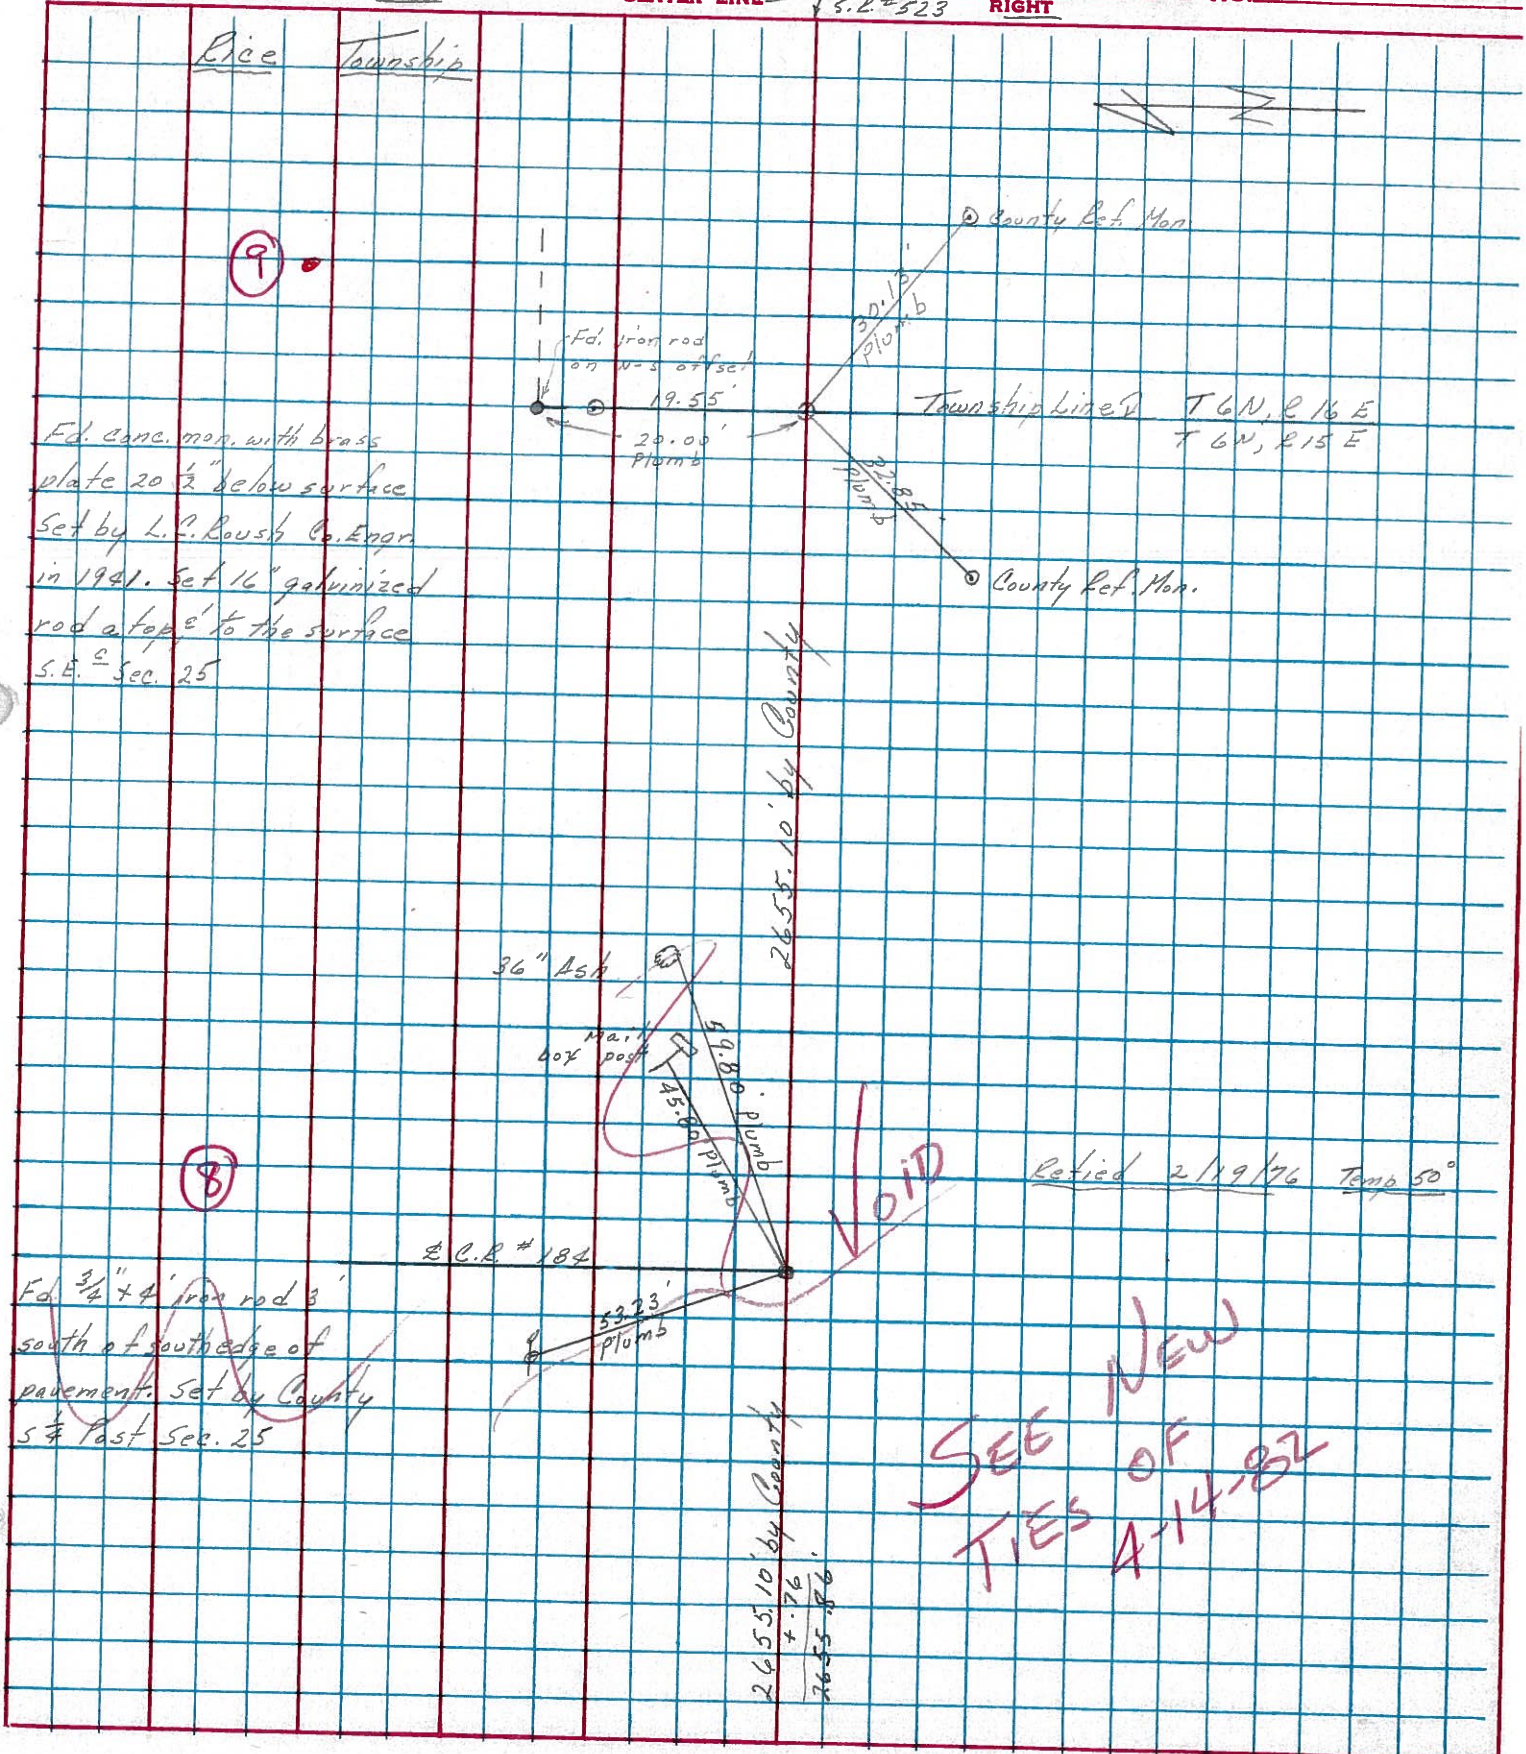 CENTER LINE S.R. #523 RIGHT
Rice Township
N
9
County Ref. Mon.
30.13'
Plumb
Fd. iron rod
on N-S offset
19.55'
20.00'
Plumb
Township Line T 6N, R 16 E
T 6N, R 15 E
32.85'
Plumb
County Ref. Mon.
Fd. Conc. mon. with brass
plate 20 1/2" below surface
Set by L.C. Roush Co. Engr.
in 1941. Set 16" galvinized
rod a top & to the surface
S.E. c Sec. 25
2655.10' by County
36" Ash
Mail
box post
59.80' plumb
45.80' plumb
8
VOID
Retied 2/19/76 Temp 50°
℄ C.R. #184
53.23'
Plumb
Fd. 3/4" x 4' iron rod 3'
south of south edge of
pavement. Set by County
S 1/4 Post Sec. 25
SEE NEW
TIES OF
4-14-82
2655.10' by County
+ .76
2655.86'